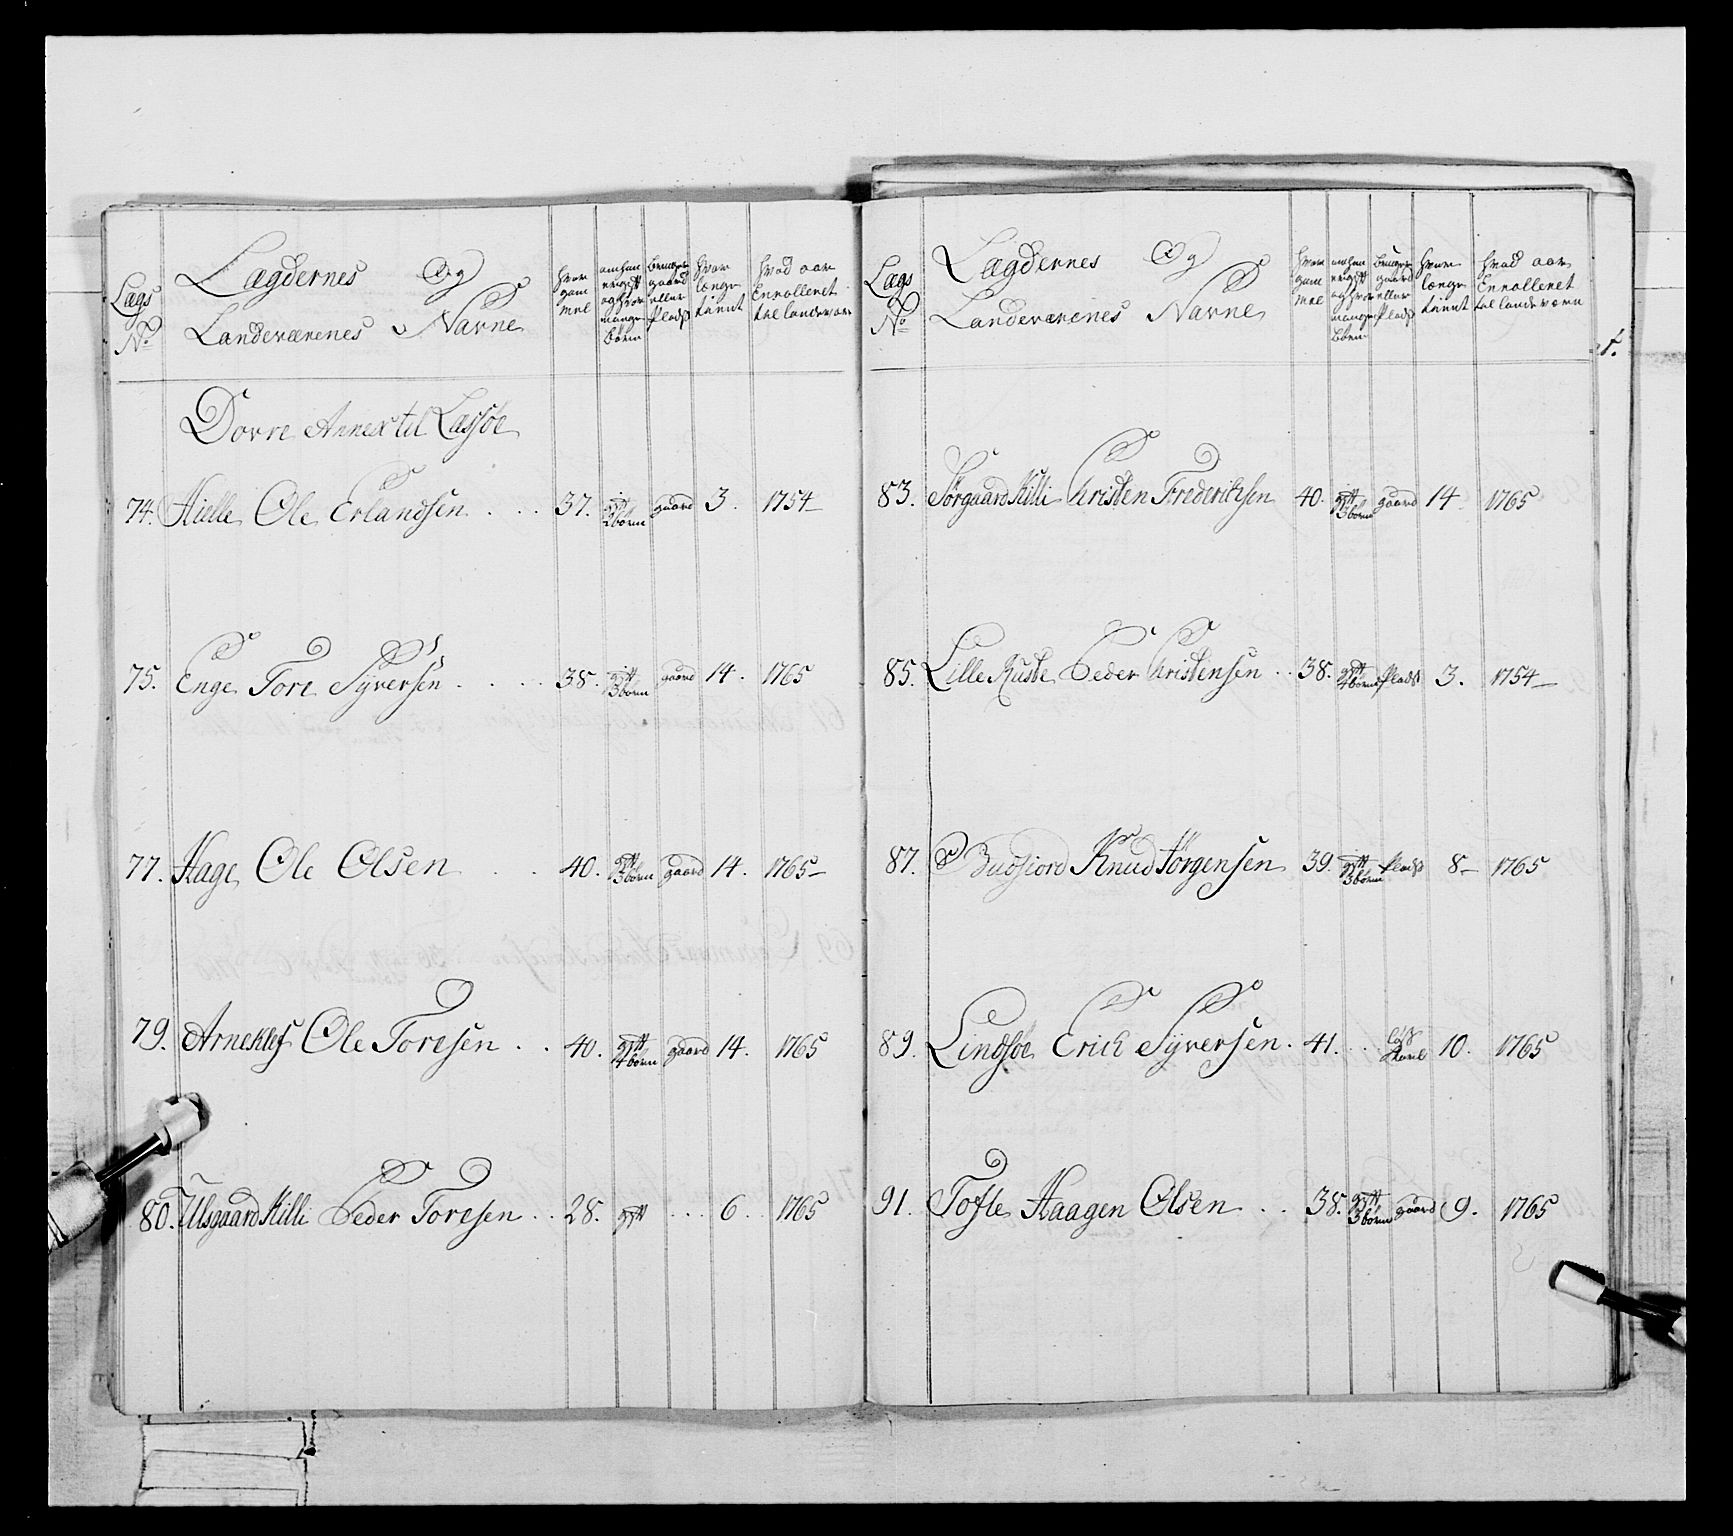 Lægs
No
Lægdernes Og
Landeværenes Navne
hvor
gam
mel
om han
er gift
og hvor
mange
børn
bruger
gaard
eller
Plads
hvor
længe
tient
hvad aar
Enrolleret
til landevær
Dovre Annex til Lassøe
74. Hielle Ole Erlandsen . . . 37. gift 2 børn gaard 3. 1754
75. Enge Tore Syversen . . . . 38. gift 3 børn gaard 14. 1765
77. Hage Ole Olsen . . 40. gift 3 børn gaard 14. 1765
79. Arneklef Ole Toresen . . 40. gift 4 børn gaard 14. 1765
80. Ulsgaard Killi Peder Toresen . . 28. gift . . . 6. . 1765
Lægs
No
Lægdernes Og
Landeværenes Navne
hvor
gam
mel
om han
er gift
og hvor
mange
børn
bruger
gaard
eller
Plads
hvor
længe
tient
hvad aar
Enrolleret
til landeværn
83. Sørgaard Killi Christen Frederichsen 40. gift 3 børn gaard 14. 1765
85. Lille Ruste Peder Christensen . . 38. gift 4 børn Plads 3. 1754
87. Knud Jørgensen 39. gift 3 børn Plads 8 1765
89. Lindsøe Erich Syversen . 41. . . løs Karl 10. 1765
91. Tofte Haagen Olsen . . 38. gift 3 børn gaard 9. 1765